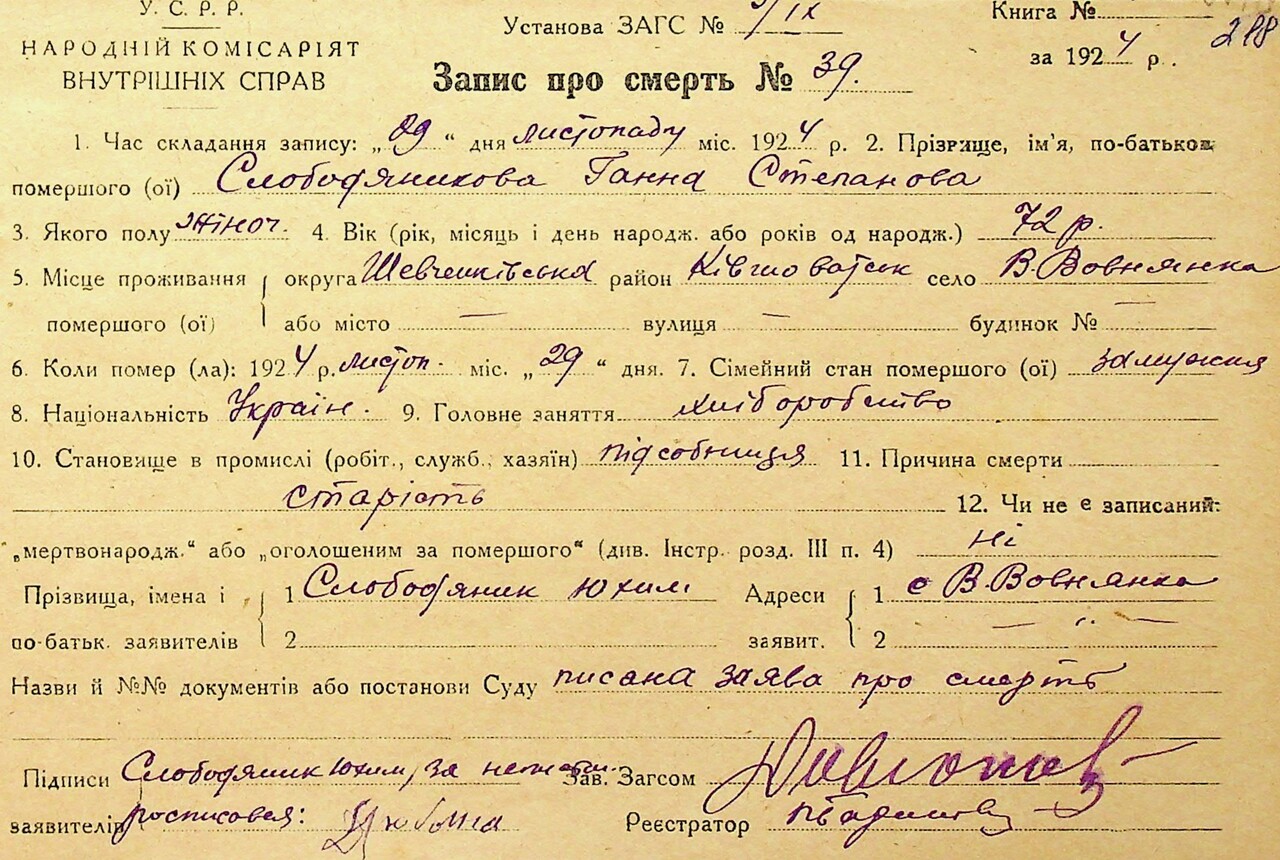 У. С. Р. Р.
НАРОДНІЙ КОМІСАРІЯТ
ВНУТРІШНІХ СПРАВ
Установа ЗАГС № /ІХ
Книга №
218
за 1924 р.
Запис про смерть № 39.
1. Час складання запису: „29“ дня листопаду міс. 1924 р. 2. Прізвище, ім'я, по-батькові
помершого (ої) Слободяникова Ганна Степанова
3. Якого полу жіноч. 4. Вік (рік, місяць і день народж. або років од народж.) 72 р.
5. Місце проживання округа Шевченківська район село В. Вовнянка
помершого (ої) або місто — вулиця — будинок № —
6. Коли помер (ла): 1924 р. листоп. міс. „29“ дня. 7. Сімейний стан помершого (ої) замужня
8. Національність Україн. 9. Головне заняття хліборобство
10. Становище в промислі (робіт., служб., хазяїн) підсобниця 11. Причина смерти
старість 12. Чи не є записаний:
„мертвонародж.“ або „оголошеним за помершого“ (див. Інстр. розд. III п. 4) ні
Прізвища, імена і 1 Слободяник Юхим Адреси 1 с В. Вовнянка
по-батьк. заявителів 2 заявит. 2 — " —
Назви й №№ документів або постанови Суду писана заява про смерть
Підписи Слободяник Юхим, за Зав. Загсом
заявителів росписовся: Реєстратор